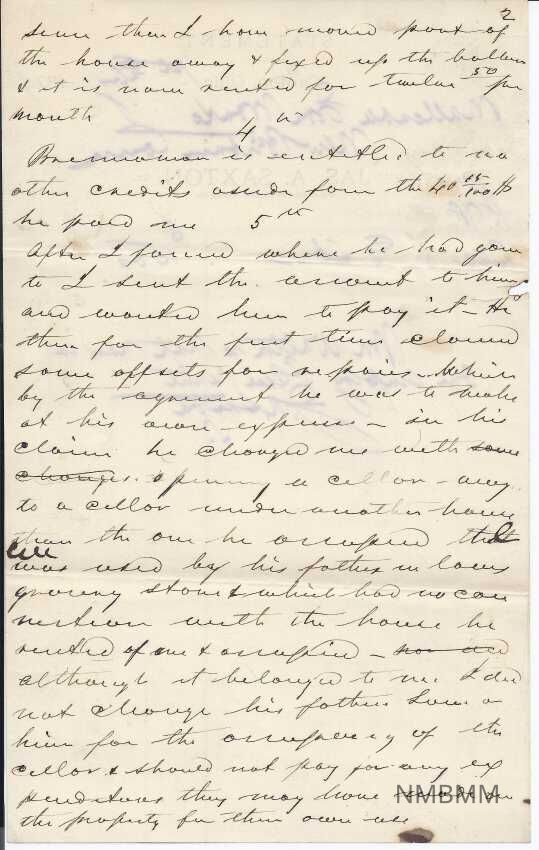 2
since then I have moved part of
the house away & fixed up the ballance
& it is now rented for twelve 50 per
month
4th
Brennaman is entitled to no
other credits aside from the 40 15/100 $
he paid me 5th
After I found where he had gone
to I sent the account to him
and wanted him to pay it - He
then for the first time claimed
some offsets for repairs which
by the agreement he was to make
at his own expense - in his
claim he charged me with some
charges. opening a cellar - way
to a cellar under another house
than the one he occupied that
was used by his father in laws
grocery store & which had no con
nection with the house he
rented of me & occupied -
although it belonged to me I did
not charge his father in law or
him for the occupency of the
cellar & should not pay for any ex
penditures they may have made on
the property for their own use
NMBMM